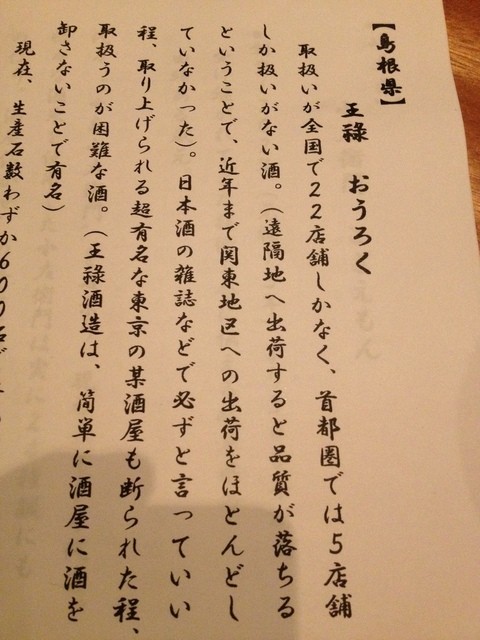 【島根県】
王祿 おうろく
取扱いが全国で22店舗しかなく、首都圏では5店舗
しか扱いがない酒。（遠隔地へ出荷すると品質が落ちる
ということで、近年まで関東地区への出荷をほとんどし
ていなかった）。日本酒の雑誌などで必ずと言っていい
程、取り上げられる超有名な東京の某酒屋も断られた程、
取扱うのが困難な酒。（王祿酒造は、簡単に酒屋に酒を
卸さないことで有名）
現在、生産石数わずか600石